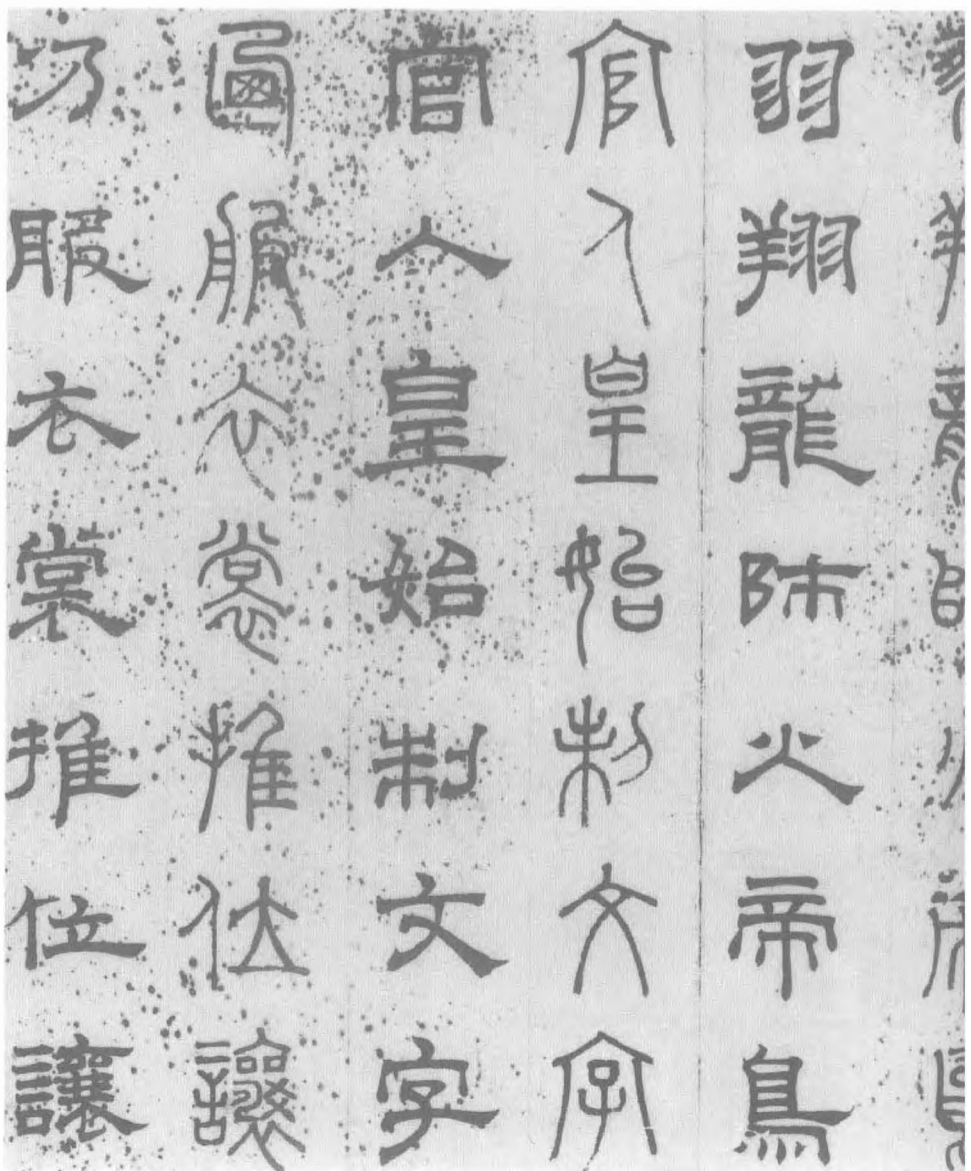 羽翔龍師火帝鳥
官人皇始制文字
官人皇始制文字
乃服衣裳推位讓
乃服衣裳推位讓